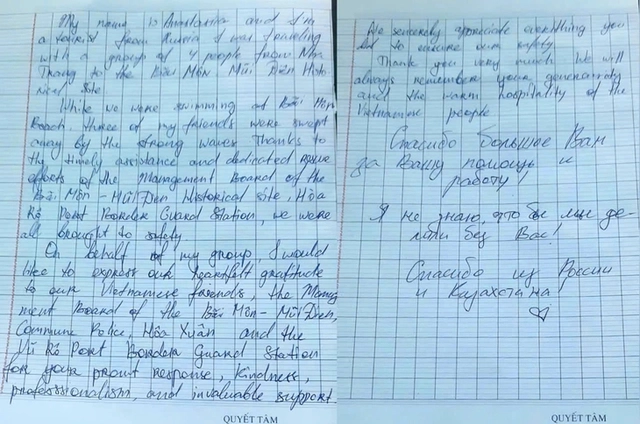 My name is Anastasia and I'm
a tourist from Russia I was traveling
with a group of 4 people from Nha
Trang to the Bãi Môn Mũi Điện Histo
rical site.
While we were swimming at Bãi Môn
Beach, three of my friends were swept
away by the strong waves Thanks to
the timely assistance and dedicated rescue
efforts of the Management Board of the
Bãi Môn - Mũi Điện Historical site, Hòa
Rô Port Border Guard Station, we were
all brought to safety.
On behalf of my group, I would
like to express our heartfelt gratitude
to our Vietnamese friends, the Manag
ment Board of the Bãi Môn - Mũi Điện,
Commune Police, Hòa Xuân and the
Vũ Rô Port Border Guard Station
for your promt response, kindness,
professionalism, and invaluable support
QUYẾT TÂM
We sincerely appreciate everything you
did to ensure our safety
Thank you very much. We will
always remember your generosity
and the warm hospitality of the
Vietnamese people
Спасибо большое Вам
за Вашу помощь и
работу!
Я не знаю, что бы мы де
лали без Вас!
Спасибо из России
и Казахстана!
QUYẾT TÂM